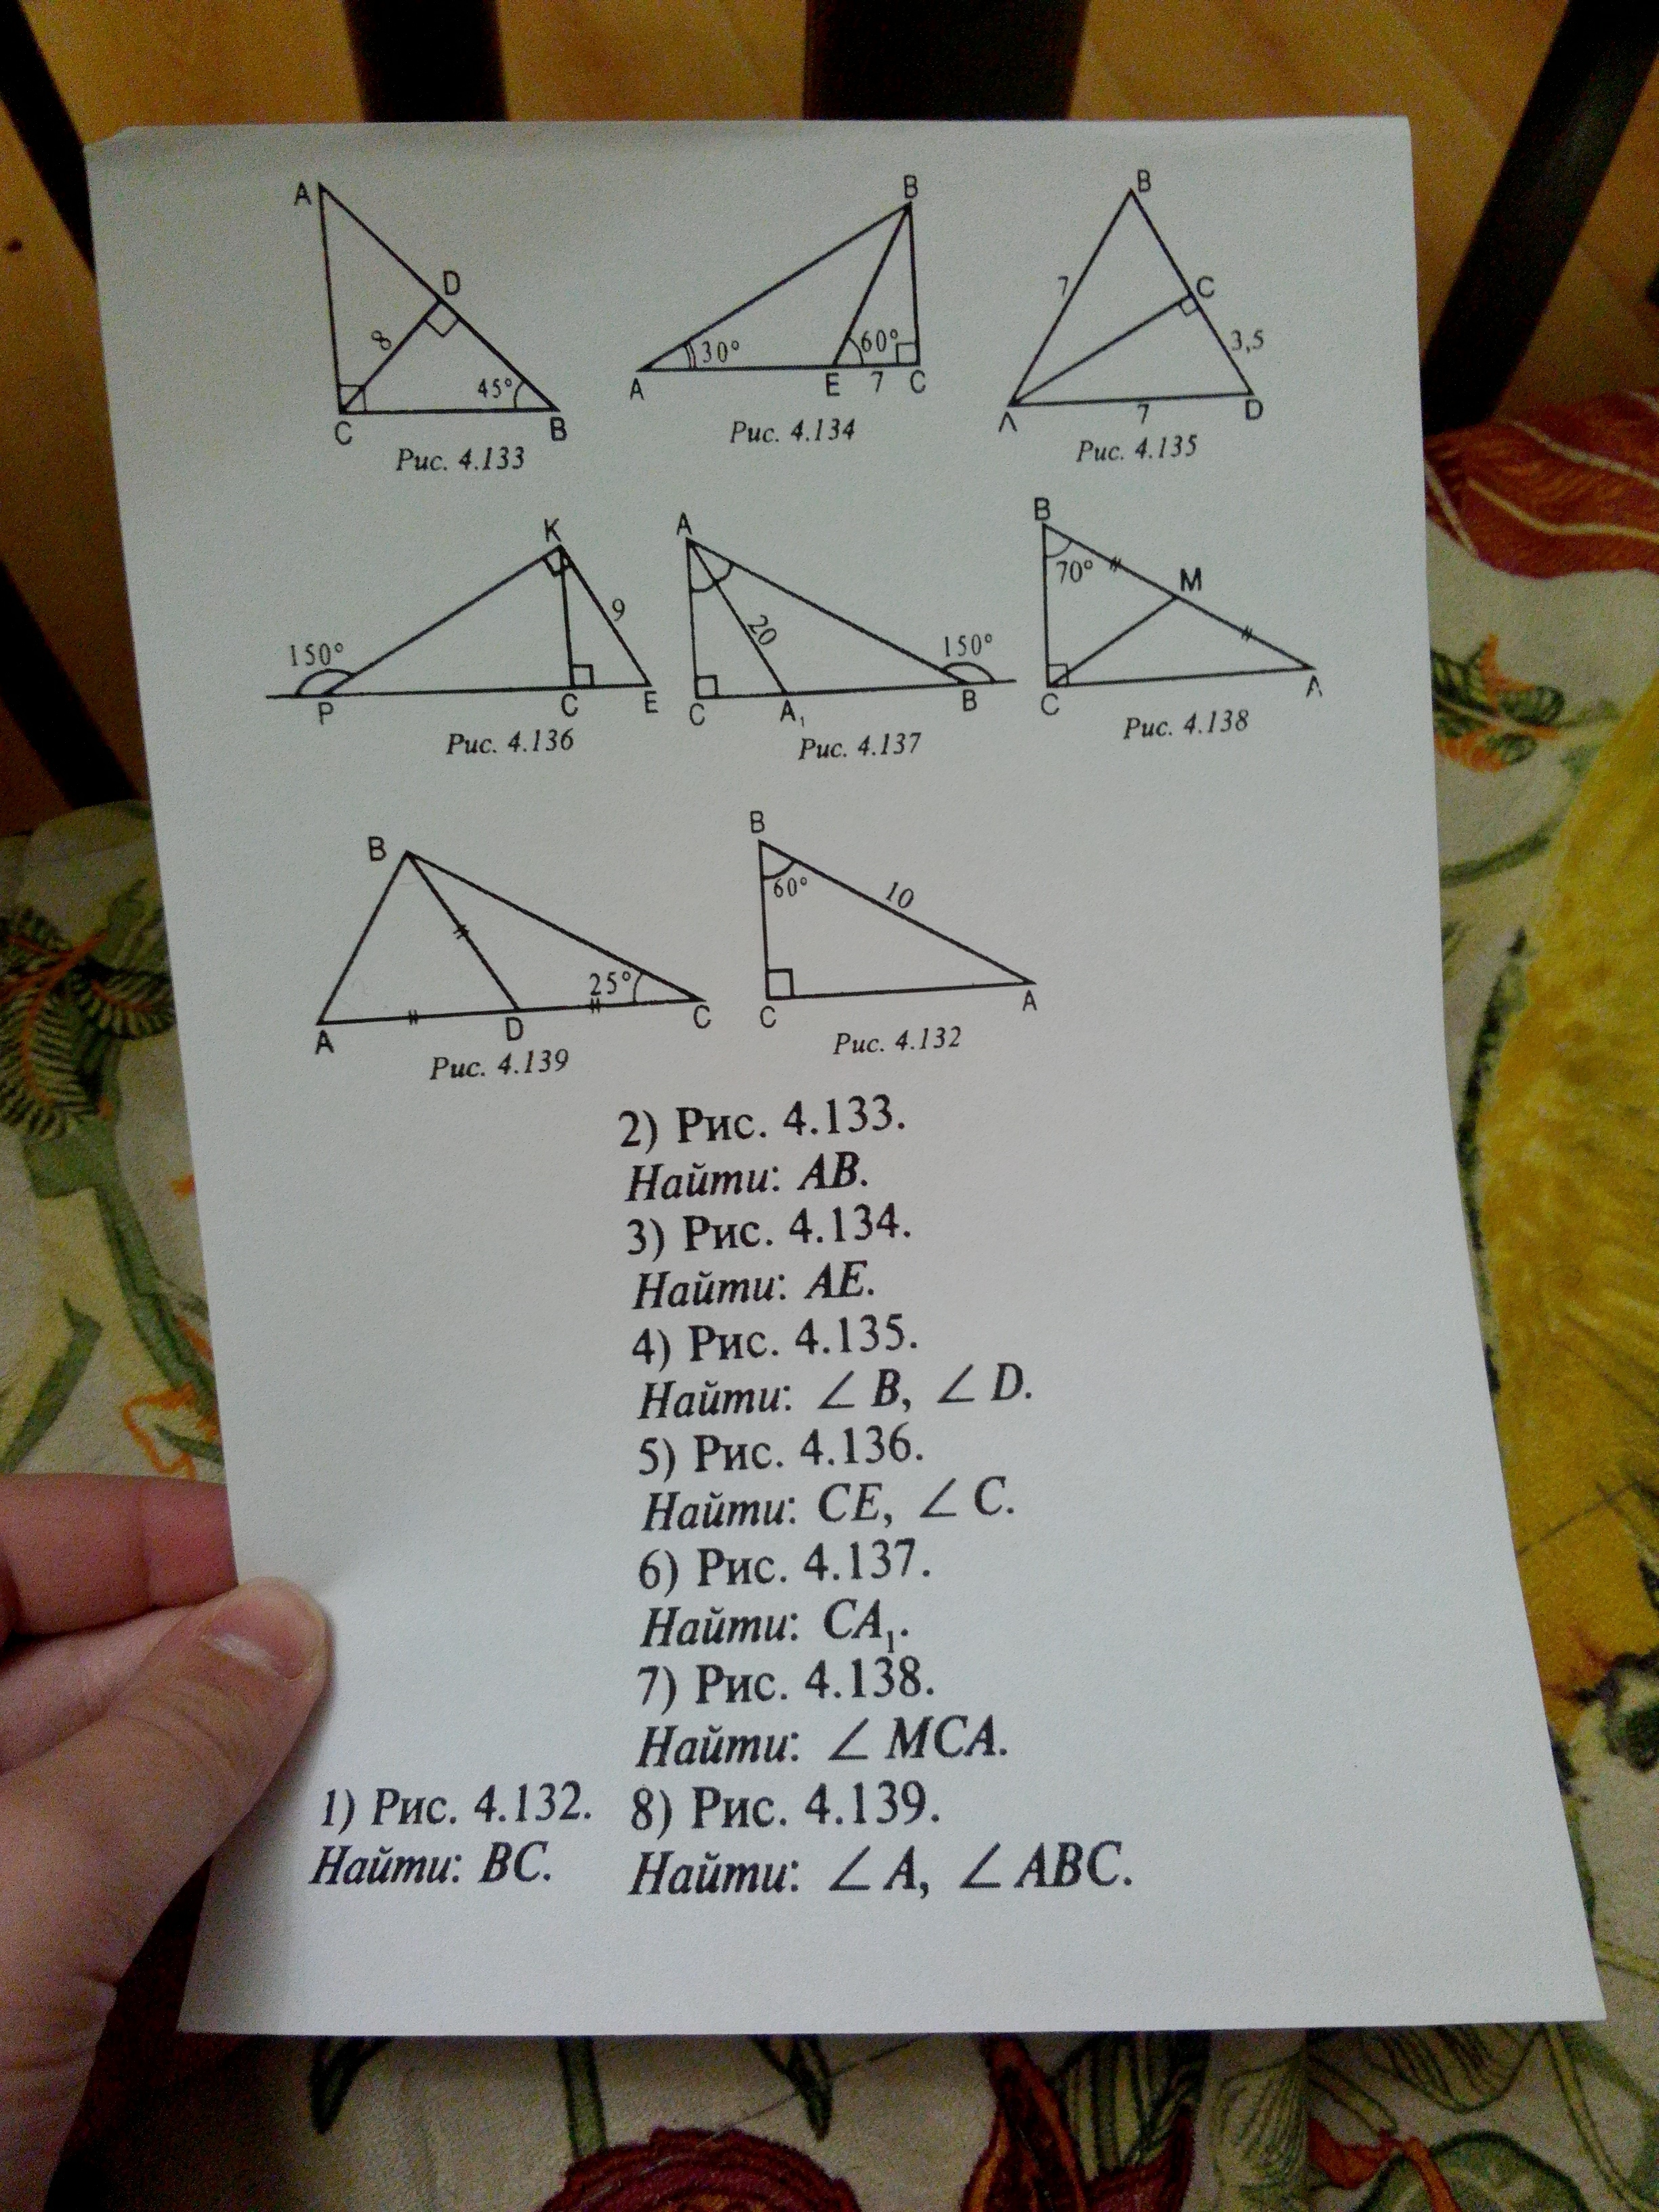 A
D
8
45°
C
B
Рис. 4.133
B
30°
60°
A
E
7
C
Рис. 4.134
B
7
C
3,5
A
7
D
Рис. 4.135
K
9
150°
P
C
E
Рис. 4.136
A
20
150°
C
A₁
B
Рис. 4.137
B
70°
M
C
A
Рис. 4.138
B
25°
A
D
C
Рис. 4.139
B
60°
10
C
A
Рис. 4.132
2) Рис. 4.133.
Найти: AB.
3) Рис. 4.134.
Найти: AE.
4) Рис. 4.135.
Найти: ∠ B, ∠ D.
5) Рис. 4.136.
Найти: CE, ∠ C.
6) Рис. 4.137.
Найти: CA₁.
7) Рис. 4.138.
Найти: ∠ MCA.
1) Рис. 4.132.
Найти: BC.
8) Рис. 4.139.
Найти: ∠ A, ∠ ABC.